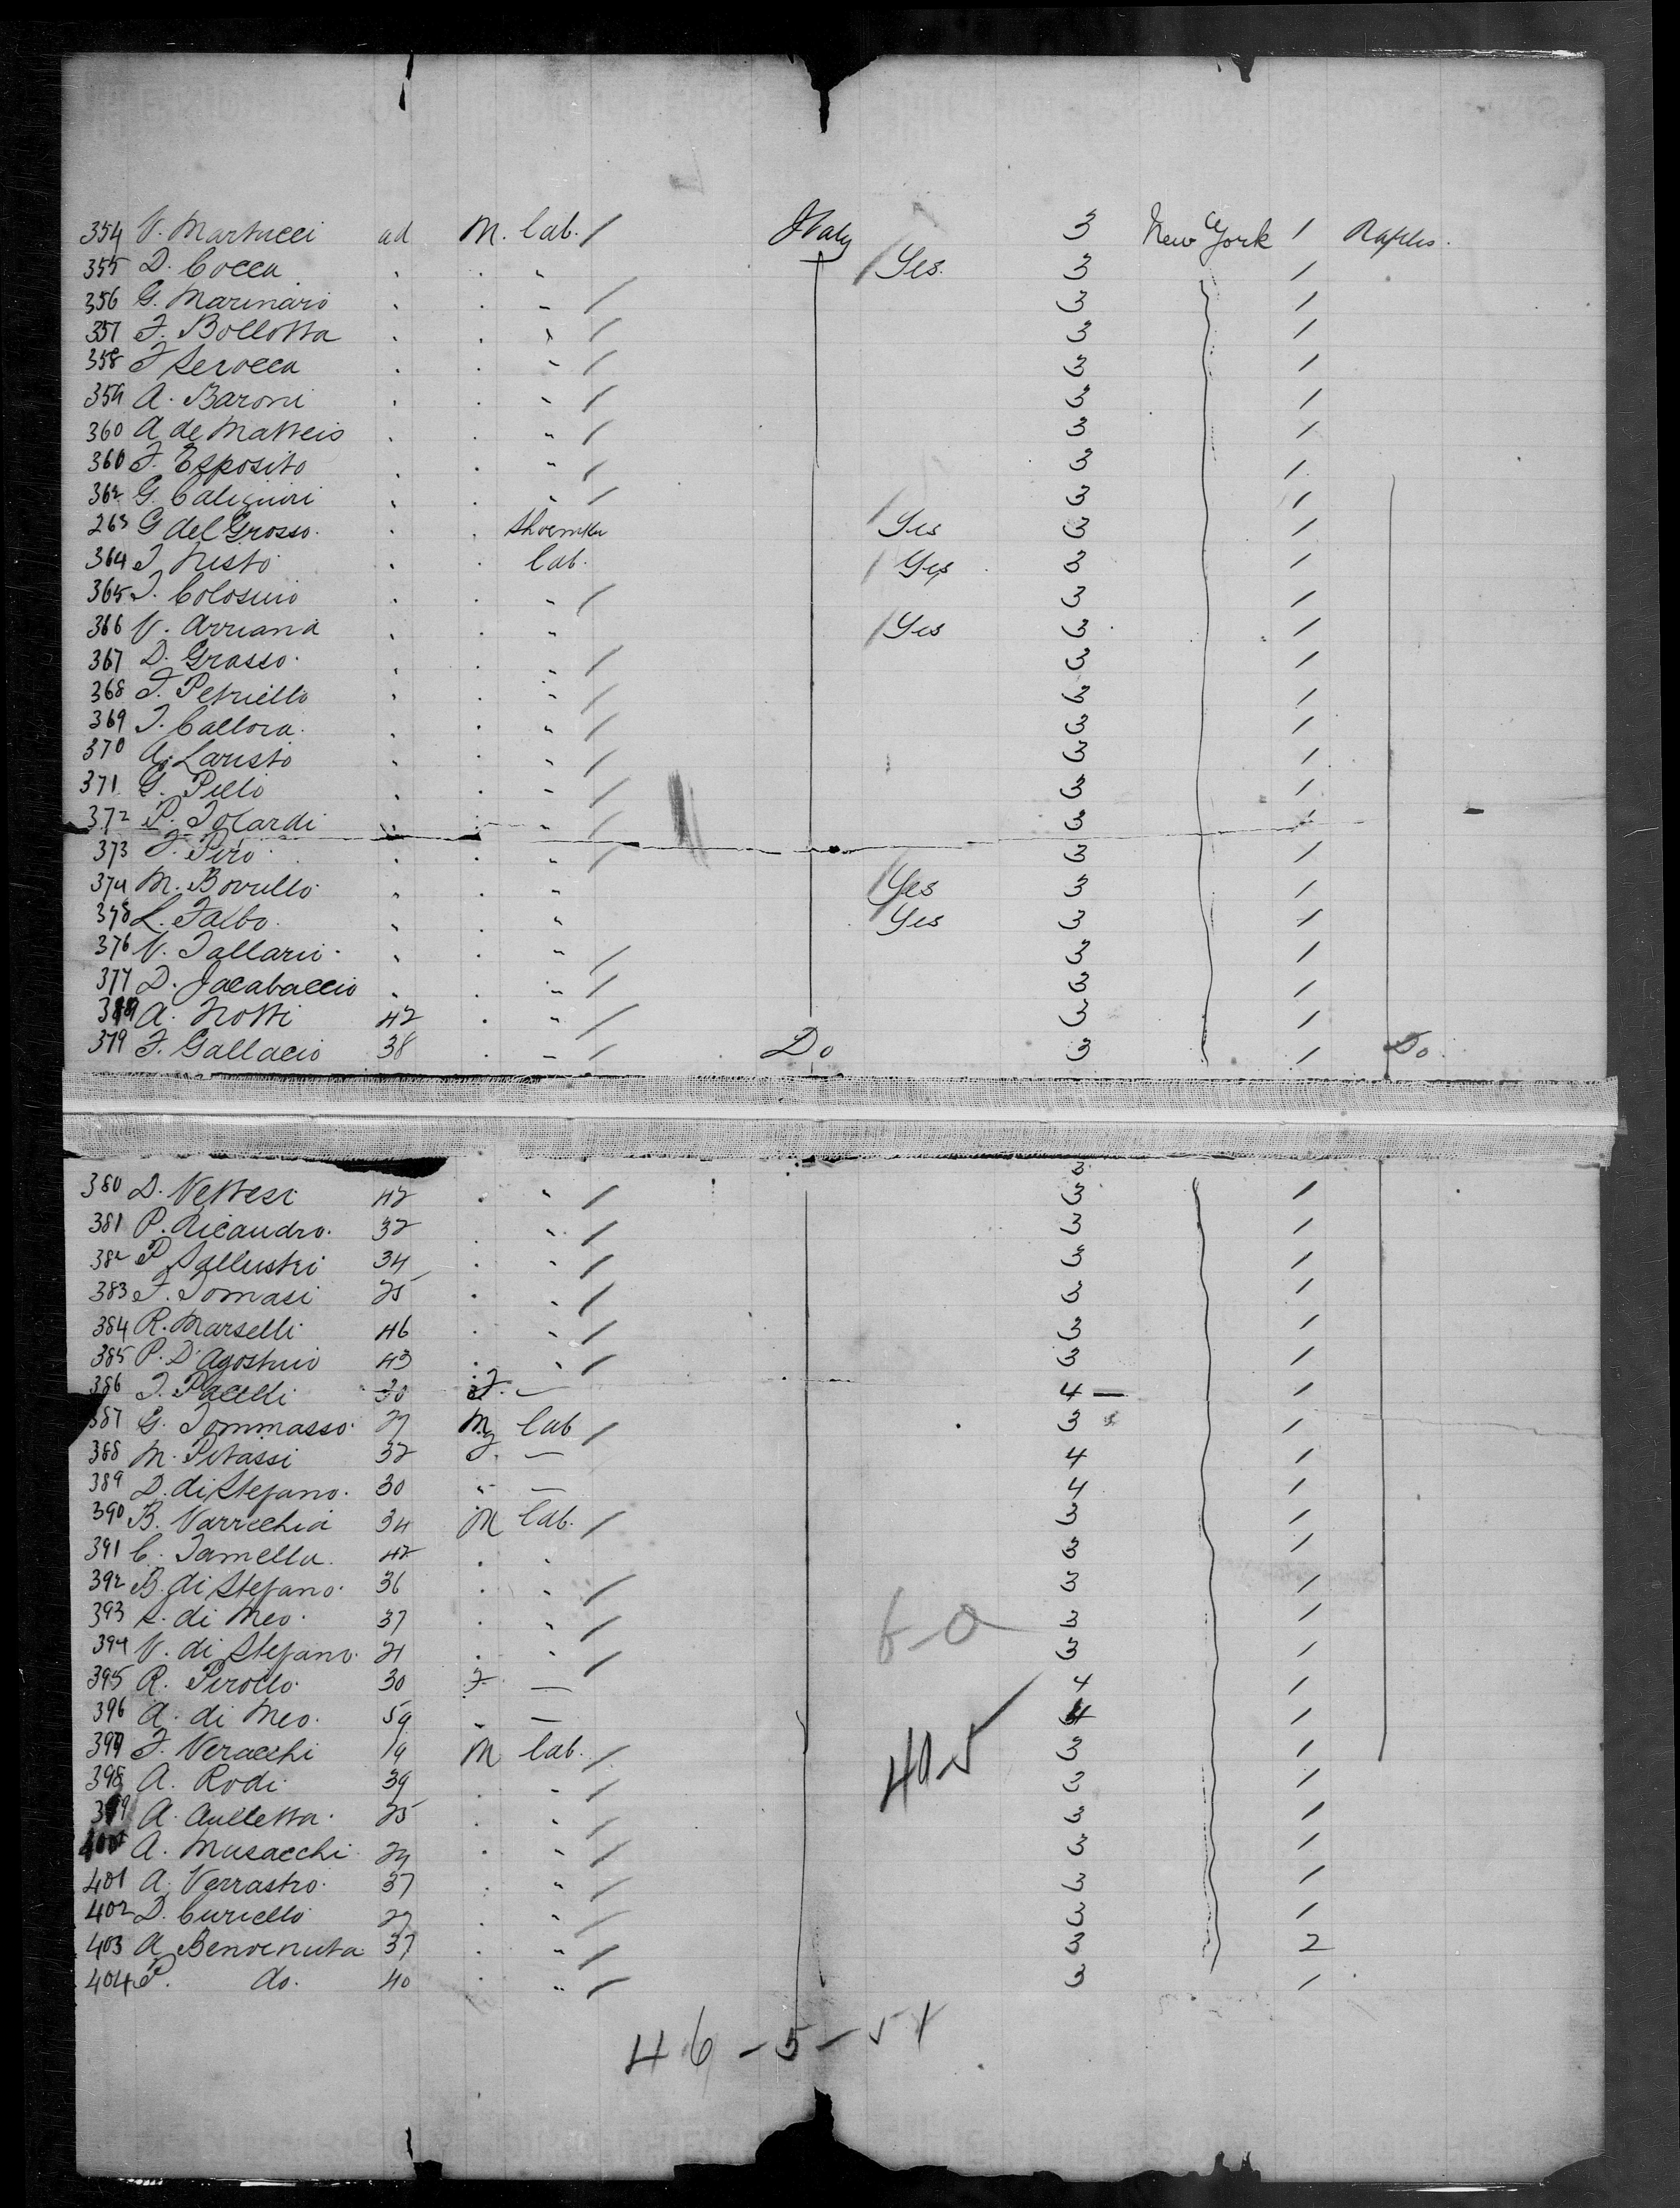 354 V. Martucci ad M. lab. / Italy 3 New York 1 Naples.
355 D. Cocca . . " / Yes. 3 /
356 G. Marinaro . . " / 3 /
357 F. Bollotta . . " / 3 /
358 F Serocca . . " / 3 /
359 A. Baroni . . " / 3 /
360 A de Matteis . . " / 3 /
360 F. Esposito . . " / 3 /
362 G. Caliguiri . . " / 3 /
263 G del Grosso. . . Shoemker / Yes 3 /
364 J. Nisto . . lab. / Yes 3 /
365 J. Colosuio . . " / 3 /
366 V. Arriana . . " / Yes 3 /
367 D. Grasso. . . " / 3 /
368 F. Petriello . . " / 3 /
369 J. Callora. . . " / 3 /
370 A. Laristo . . " / 3 /
371 G. Pillo . . " / 3 /
372 P. Tolardi . . " / 3 /
373 F. Piro . . " / 3 /
374 M. Borrello . . " / Yes 3 /
378 L. Falbo. . . " / Yes 3 /
376 V. Tallarii . . " / 3 /
377 D. Jacabaccio . . " / 3 /
A. Notti 42 . " / 3 /
379 F. Gallacio 38 . " / Do 3 / Do
3
380 D. Vettese 42 . " / 3 /
381 P. Ricaudro. 32 . " / 3 /
382 P. Sallustri 34 . " / 3 /
383 F. Tomasi 25 . " / 3 /
384 R. Marselli 46 . " / 3 /
385 P. D'Agostino 43 . " / 3 /
386 J. Pacelli 30 F. — 4 — /
387 G. Tommasso 27 M lab / 3 /
388 M. Pitassi 32 F. — 4 /
389 D. di Stefano. 30 " — 4 /
390 B. Varrechia 34 M lab. / 3 /
391 C. Tamella. 42 . " 3 /
392 B. di Stefano. 36 . " / 3 /
393 L. di Meo. 37 . " / 3 /
394 V. di Stefano. 21 . " / 3 /
395 R. Pirollo. 30 F — 4 /
396 A. di Meo. 59 " — 4 /
399 F. Veracchi 19 M lab. / 3 /
398 A. Rodi 39 . " / 3 /
A. Aulletta. 25 . " / 3 /
A. Musacchi 29 . " / 3 /
401 A. Verrastro. 37 . " / 3 /
402 D. Curiello 27 . " / 3 /
403 A Benvenuta 37 . " / 3 2
404 P. do. 40 . " / 3 /
405
46 - 5 - 51